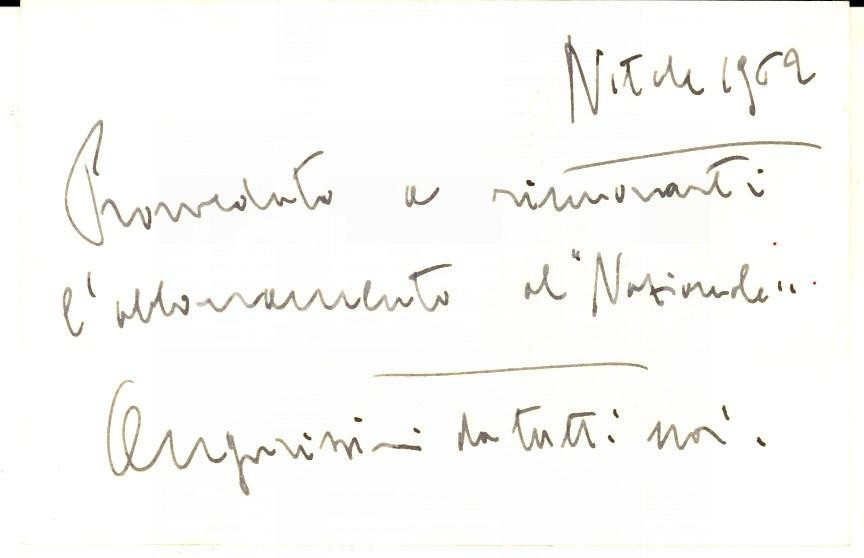 Natale 1962
Provveduto a rinnovarti
l'abbonamento al "Nazionale".
Augurissimi da tutti noi.